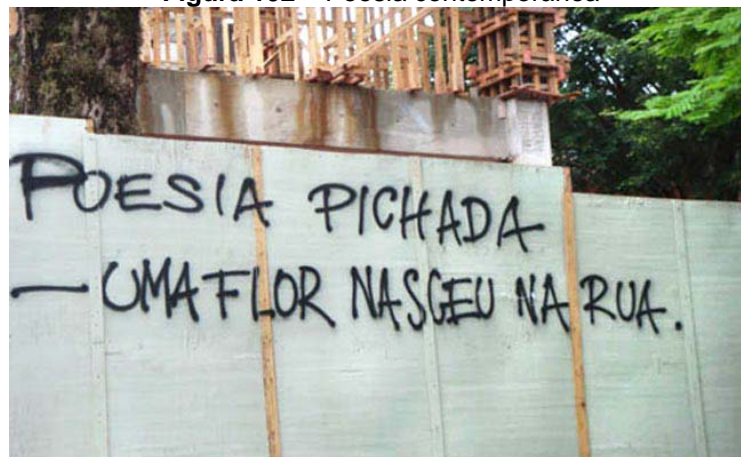 POESIA PICHADA
— UMA FLOR NASCEU NA RUA.